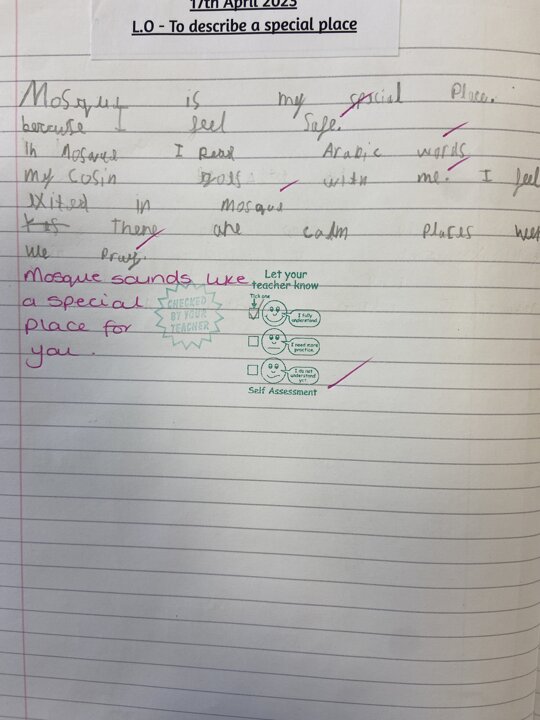 17th April 2023
L.O - To describe a special place
Mosque is my special Place.
because I feel Safe.
In Mosque I Read Arabic words
my Cosin with me. I feel
exited in mosque
There are calm places
we Pray.
Mosque sounds like
a special
place for
you.
CHECKED
BY YOUR
TEACHER
Let your
teacher know
Tick one
I fully
understand.
I need more
practice.
I do not
understand
yet.
Self Assessment